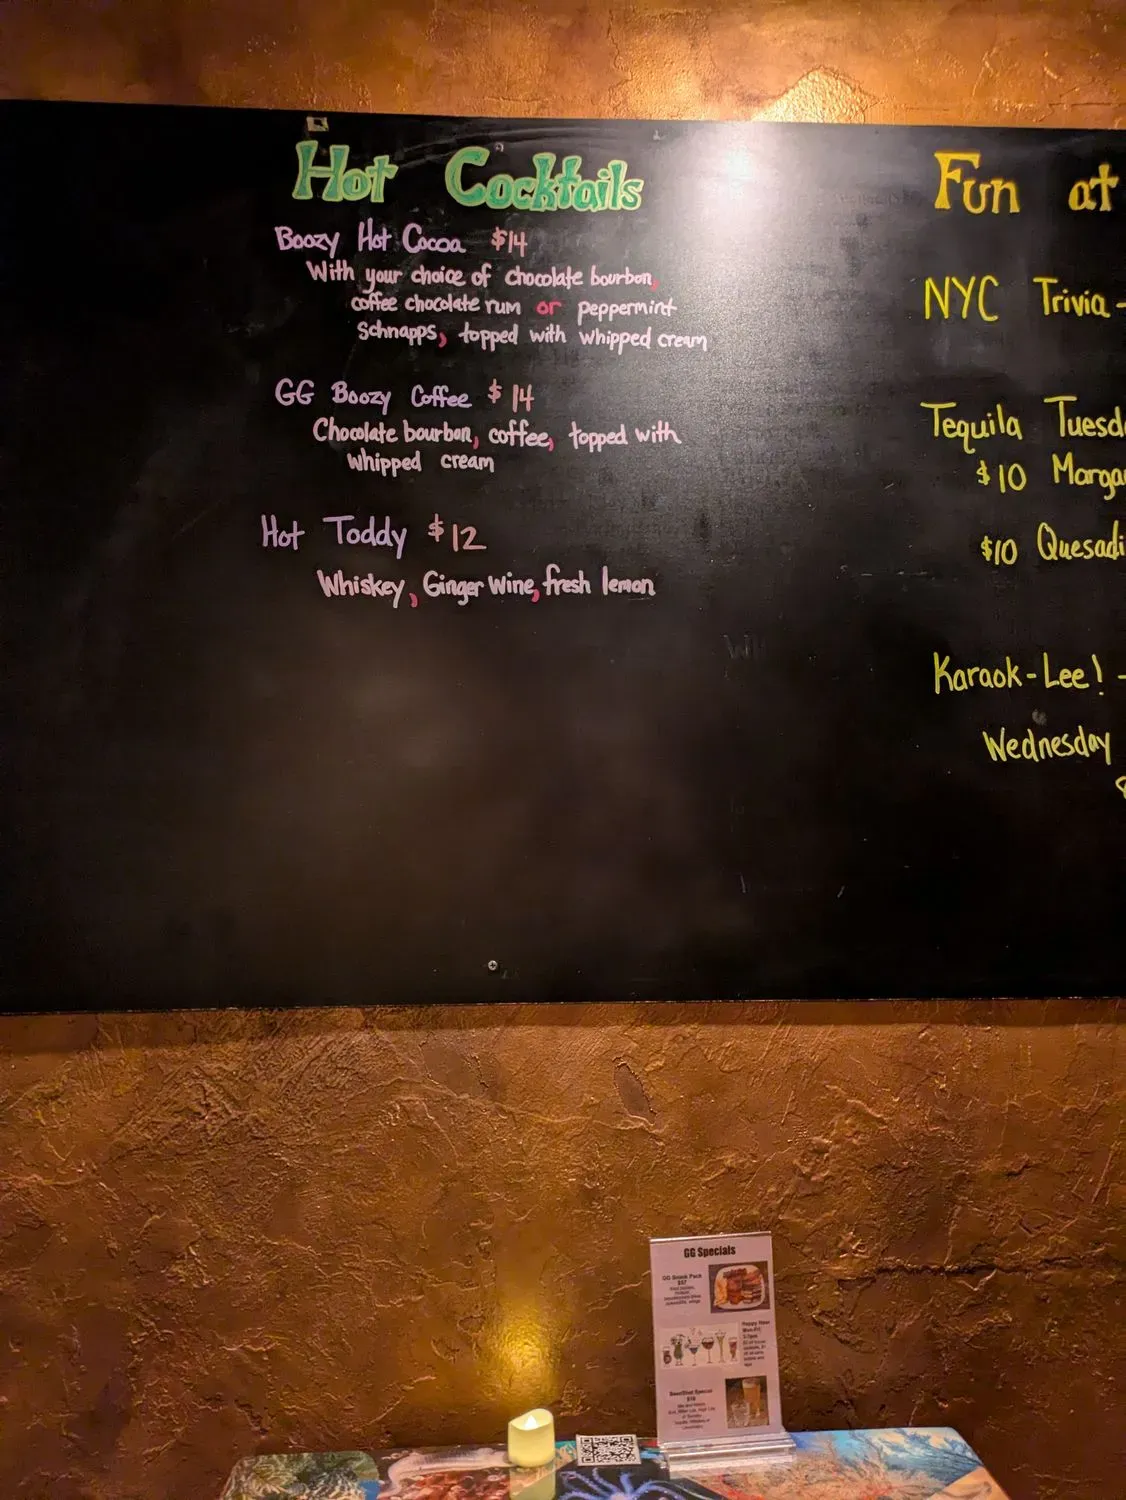 Hot Cocktails
Boozy Hot Cocoa $14
With your choice of chocolate bourbon,
coffee chocolate rum or peppermint
Schnapps, topped with whipped cream
GG Boozy Coffee $14
Chocolate bourbon, coffee, topped with
whipped cream
Hot Toddy $12
Whiskey, Ginger Wine, fresh lemon
Fun at
NYC Trivia -
Tequila Tuesd
$10 Marga
$10 Quesadi
Karaok-Lee! -
Wednesday
GG Specials
GG Snack Pack
$37
Happy Hour
Mon-Fri
Beer/Shot Special
$10